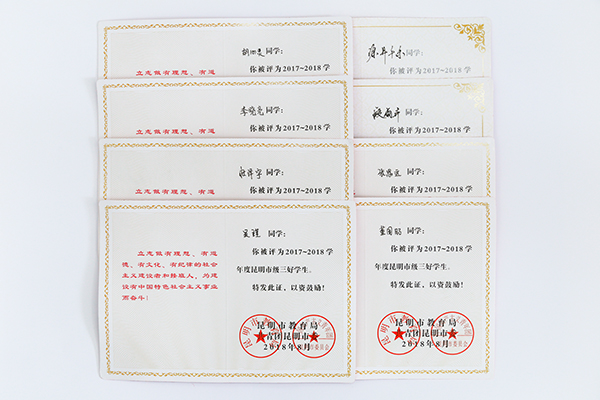 同学:
你被评为2017~2018学
立志做有理想、有道
同学:
你被评为2017~2018学
李晓亮同学:
你被评为2017~2018学
立志做有理想、有道
同学:
你被评为2017~2018学
同学:
你被评为2017~2018学
立志做有理想、有道
同学:
你被评为2017~2018学
同学:
你被评为2017~2018学
年度昆明市级三好学生。
特发此证，以资鼓励!
立志做有理想、有道
德、有文化、有纪律的社会
主义建设者和接班人，为建
设有中国特色社会主义事业
而奋斗!
昆明市教育局
共青团昆明市委
2018年8月
同学:
你被评为2017~2018学
年度昆明市级三好学生。
特发此证，以资鼓励!
昆明市教育局
共青团昆明市委
2018年8月